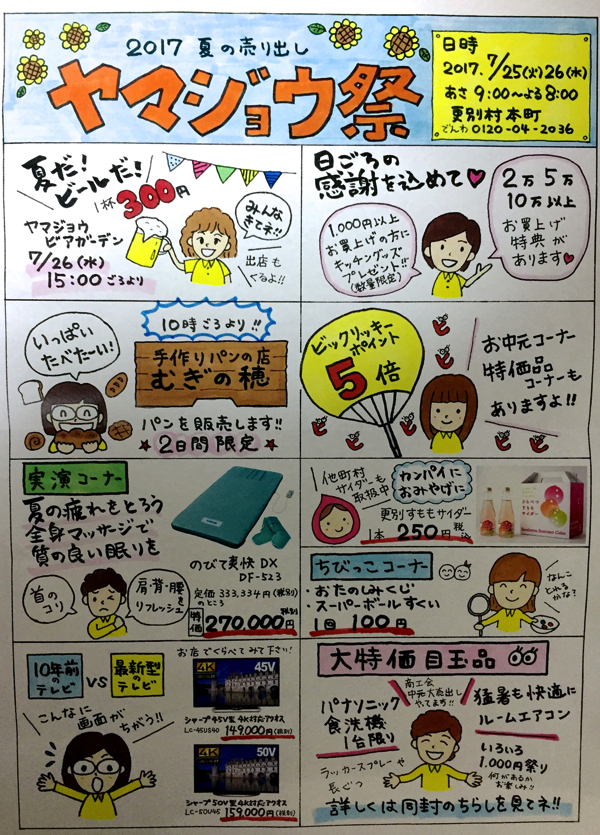 2017 夏の売り出し
ヤマジョウ祭
日時
2017. 7/25(火)26(水)
あさ 9:00〜よる8:00
更別村本町
でんわ 0120-04-2036
夏だ!
ビールだ!
1杯 300円
ヤマジョウ
ビアガーデン
7/26(水)
15:00ごろより
みんな
きてネ!!
出店も
くるよ!!
日ごろの
感謝を込めて♥
1,000円以上
お買上げの方に
キッチングッズ
プレゼント!!
(数量限定)
2万 5万
10万以上
お買上げ
特典が
あります♥
いっぱい
たべたーい!
10時ごろより!!
手作りパンの店
むぎの穂
パンを販売します!!
★2日間限定★
ビックリッキー
ポイント
5倍
お中元コーナー
特価品
コーナーも
ありますよ!!
実演コーナー
夏の疲れをとろう
全身マッサージで
質の良い眠りを
首の
コリ
肩背・腰を
リフレッシュ
のびて爽快 DX
DF-523
定価 333,334円(税別)
のところ
特価 270,000円 税別
他町村
サイダーも
取扱中
カンパイに
おみやげに
更別すももサイダー
1本 250円 税込
ちびっこコーナー
・おたのしみくじ
・スーパーボールすくい
1回 100円
なんこ
とれる
かな?
10年前の
テレビ
VS
最新型の
テレビ
こんなに
画面が
ちがう!!
お店でくらべてみて下さい!
4K
45V
シャープ45V型 4K対応アクオス
LC-45US40 149,000円(税別)
4K
50V
シャープ50V型4K対応アクオス
LC-50U45 159,000円(税別)
大特価目玉品
商工会
中元大売出し
やってます!!
パナソニック
食洗機
1台限り
猛暑も快適に
ルームエアコン
ラッカースプレーや
長ぐつ
いろいろ
1,000円祭り
何があるか
お楽しみ!!
詳しくは同封のちらしを見てネ!!